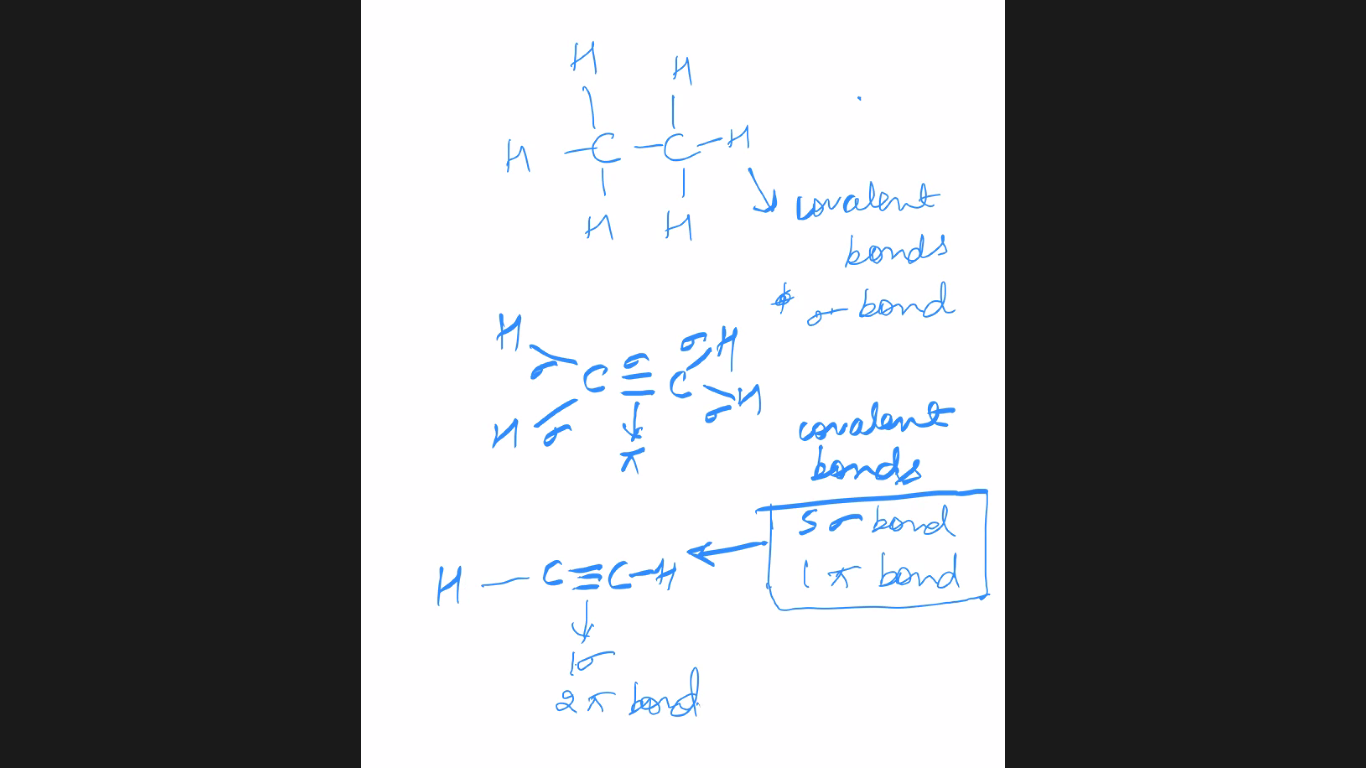 H H
H - C - C - H
H H
covalent
bonds
* σ bond
H σ C = σ C σ H
H σ σ H
π
covalent
bonds
5 σ bond
1 π bond
H - C ≡ C - H
1σ
2 π bond